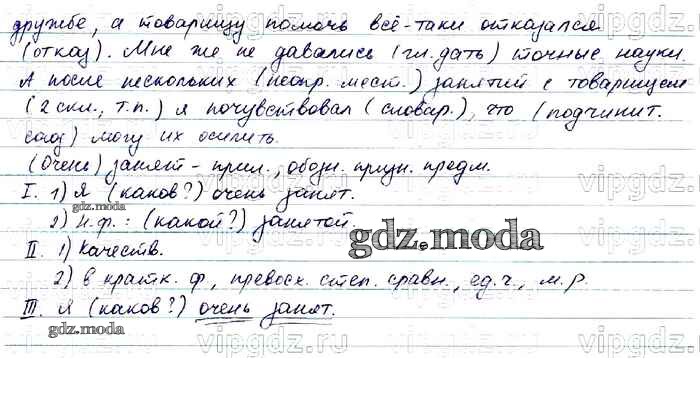 дружбе, а товарищу помочь всё-таки отказался
(отказ). Мне же не давались (гл. дать) точные науки.
А после нескольких (неопр. мест.) занятий с товарищем
(2 скл., т.п.) я почувствовал (словар.), что (подчинит.
союз) могу их осилить.
(Очень) занят - прил., обозн. призн. предм.
I. 1) Я (каков?) очень занят.
gdz.moda
2) Н.ф.: (какой?) занятой.
gdz.moda
II. 1) Качеств.
2) В кратк. ф., превосх. степ. сравн., ед.ч., м.р.
III. Я (каков?) очень занят.
gdz.moda
vipgdz.ru